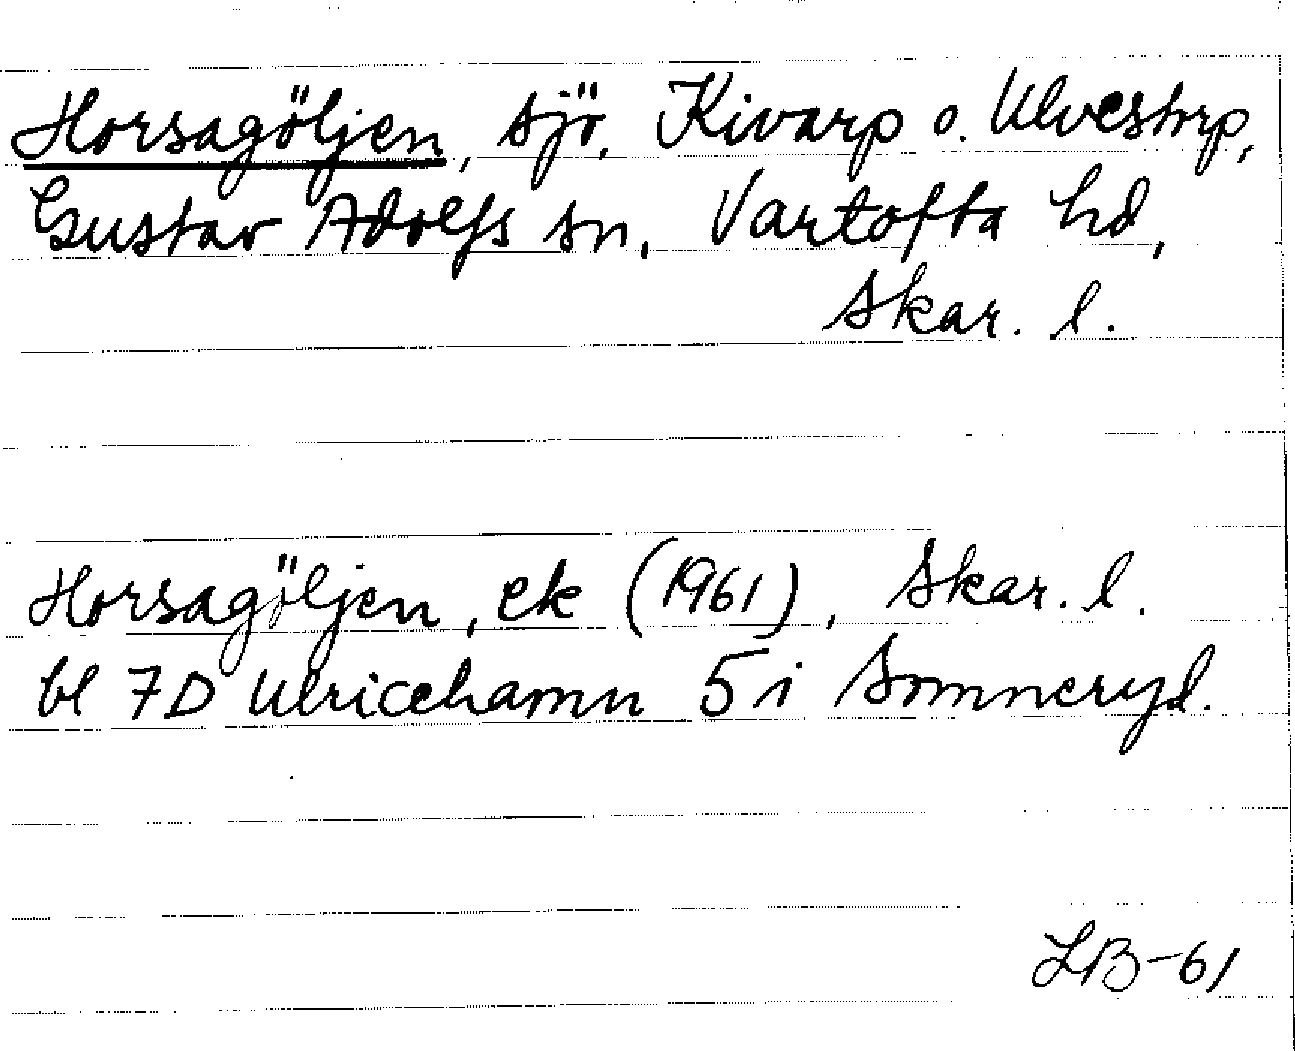 Horsagöljen, sjö, Kivarp o. Ulvestorp,
Gustav Adolfs sn, Vartofta hd,
Skar. l.
Horsagöljen, ek (1961), Skar. l.
bl 7D Ulricehamn 5 i Sommeryd.
LB-61